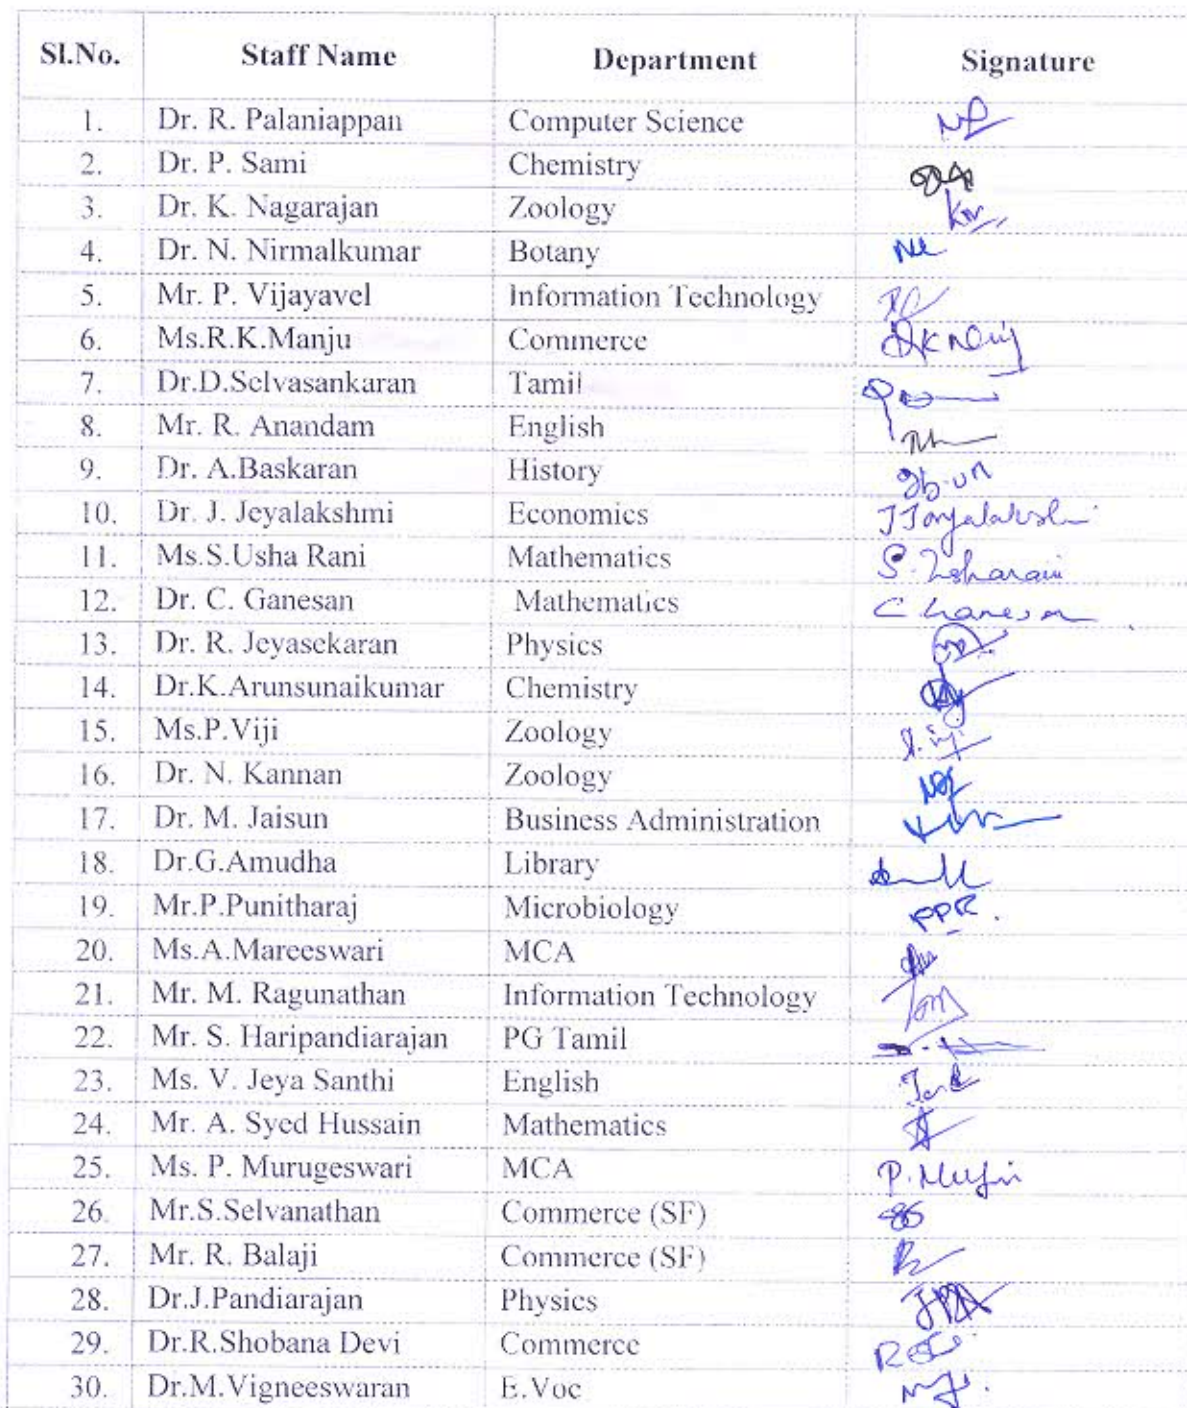 Sl.No. Staff Name Department Signature
1. Dr. R. Palaniappan Computer Science
2. Dr. P. Sami Chemistry
3. Dr. K. Nagarajan Zoology
4. Dr. N. Nirmalkumar Botany
5. Mr. P. Vijayavel Information Technology
6. Ms.R.K.Manju Commerce
7. Dr.D.Selvasankaran Tamil
8. Mr. R. Anandam English
9. Dr. A.Baskaran History
10. Dr. J. Jeyalakshmi Economics
11. Ms.S.Usha Rani Mathematics
12. Dr. C. Ganesan Mathematics
13. Dr. R. Jeyasekaran Physics
14. Dr.K.Arunsunaikumar Chemistry
15. Ms.P.Viji Zoology
16. Dr. N. Kannan Zoology
17. Dr. M. Jaisun Business Administration
18. Dr.G.Amudha Library
19. Mr.P.Punitharaj Microbiology PPR.
20. Ms.A.Mareeswari MCA
21. Mr. M. Ragunathan Information Technology
22. Mr. S. Haripandiarajan PG Tamil
23. Ms. V. Jeya Santhi English
24. Mr. A. Syed Hussain Mathematics
25. Ms. P. Murugeswari MCA
26. Mr.S.Selvanathan Commerce (SF)
27. Mr. R. Balaji Commerce (SF)
28. Dr.J.Pandiarajan Physics
29. Dr.R.Shobana Devi Commerce
30. Dr.M.Vigneeswaran E.Voc